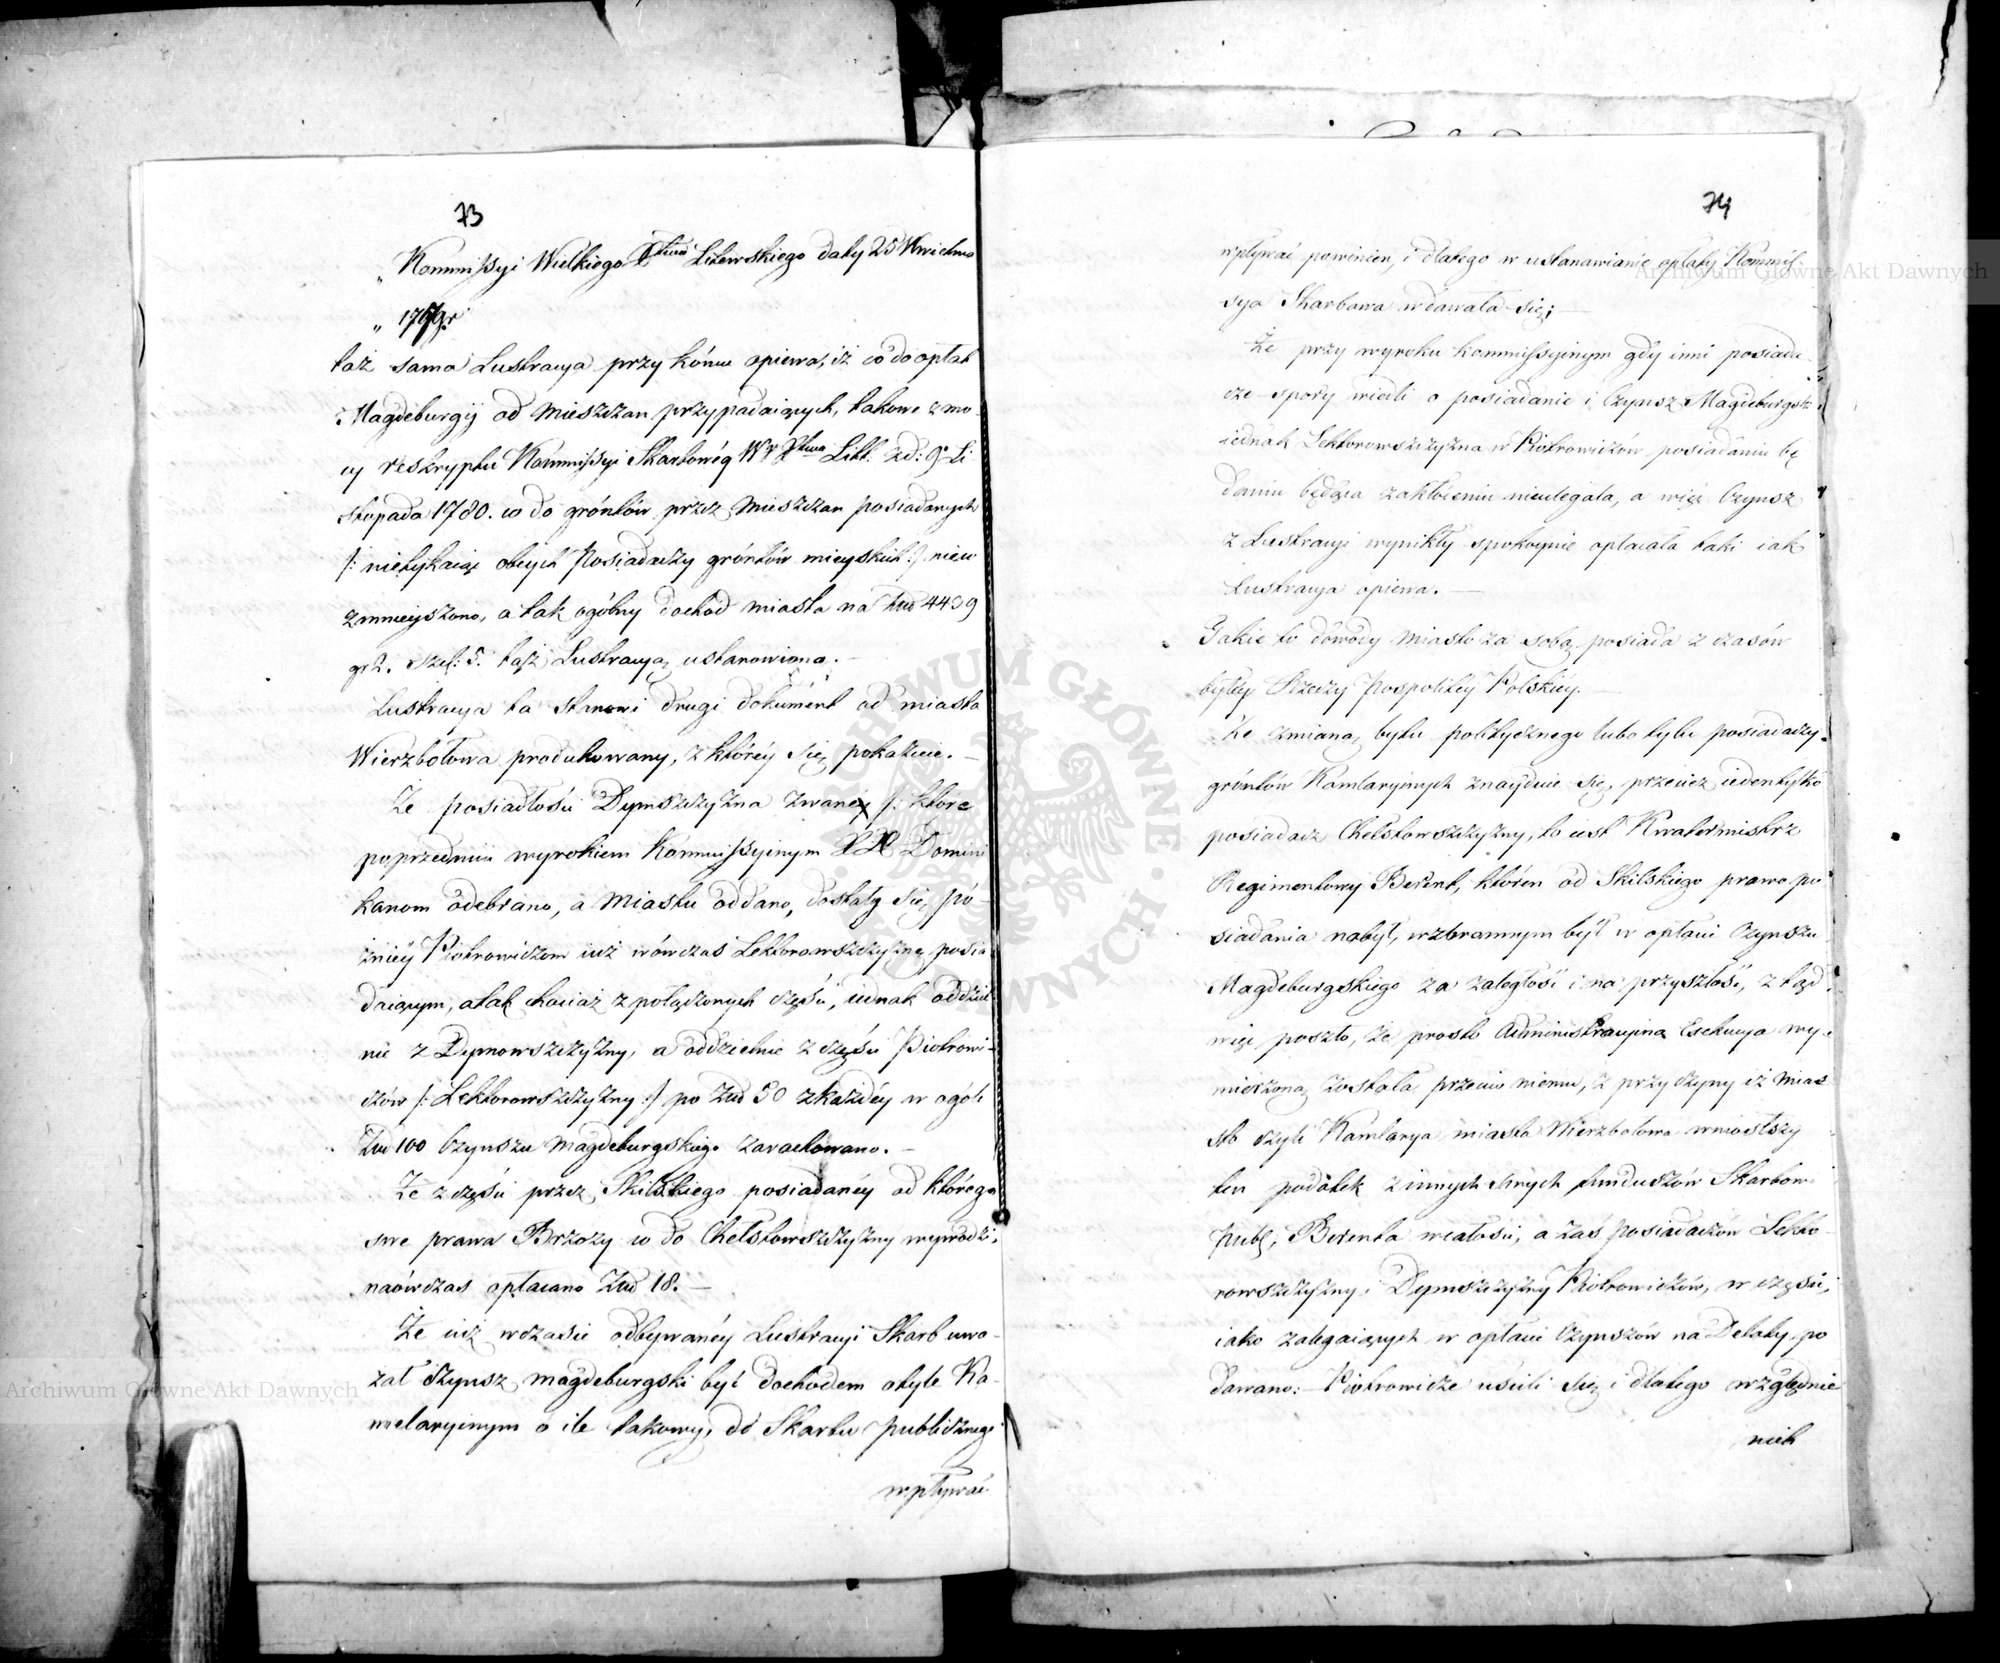 73
„ Kommissyi Wielkiego Xtwa Litewskiego daty 25 Kwietnia
„ 1767gr
taż sama Lustracya przy końcu opiewa, iż co do opłat
z Magdeburgij od mieszczan przypadaiących, takowe z mo-
cy reskryptu Kommissyi Skarbowéy Wgo Xtwa Litt. zd: 9 Li
stopada 1780. co do gróntów przez mieszczan posiadanych
/: nietykaiąc obcych Posiadaczy gróntów mieyskich :/ nieco
zmnieyszono, a tak ogólny dochod miasta na Złud 4439
gr 2. szel: 5. tąż Lustracyą ustanowiono. —
Lustracya ta stanowi drugi dokument od miasta
Wierzbołowa produkowany, z któréy się pokazuie. —
Że posiadłości Dymszczyzna zwanéy /: które
poprzednim wyrokiem Kommissyinym XX Domini
kanom odebrano, a Miastu oddano, dostały się pó-
źniéy Piotrowiczom iuż wówczas Lektorowszczyznę posia
daiącym, atak chociaż z połączonych części, iednak oddziel
nie z Dymowszczyzny, a oddzielnie z części Piotrowi-
czów /: Lektorowszczyzny :/ po Złud 50 z każdéy w ogóle
Złud 100 Czynszu Magdeburgskiego zarachowano. —
Że z części przez Skilskiego posiadanéy od którego
swe prawa Brzozy co do Chełstowszczyzny wywodzi,
naówczas opłacano Złud 18. —
Że iuż wczasie odbywanéy Lustracyi Skarb uwa-
żał Czynsz magdeburgski być dochodem otyle Ka-
melaryinym o ile takowy, do Skarbu publicznego
wpływać
74
wpływać powinien, i dlatego w ustanawianie opłaty Kommis-
sya Skarbowa wdawała się; —
Że przy wyroku kommissyinym gdy inni posiada-
cze spory wiedli o posiadanie i Czynsz Magdeburgski
iednak Lektorowszczyzna w Piotrowiczów posiadaniu bę
daniu będąca zakłóceniu nieulegała, a więc Czynsz
z Lustracyi wynikły spokoynie opłacała taki iak
Lustracya opiewa. —
Jakie to dowody miasto za sobą posiada z czasów
byłéy Rzeczy Pospolitéy Polskiéy. —
Że zmianą bytu politycznego lubo tylu posiadaczy
gróntów Kamlaryinych znayduie się, przecież iedentylko
posiadacz Chełstowszczyzny, to iest Kwatermistrz
Regimentowy Berent, któren od Skilskiego prawo po
siadania nabył, wzbronnym był w opłacie Czynszu
Magdeburgskiego za zaległość i na przyszłość, z tąd
więc poszło, że prosto Administracyina Exekucya wy-
mierzoną została przeciw niemu, z przyczyny iż mias
sto czyli Kamlarya miasta Wierzbołowa wniosłszy
ten podatek z innych swych funduszów Skarbowi
Publ, Berenta wcałości, a zaś posiadaczów Lekto-
rowszczyzny i Dymszczyzny Piotrowiczów, w części,
iako zalegaiących w opłacie Czynszów na Detaty po
dawano: — Piotrowicze uścili się i dlatego względnie
nich